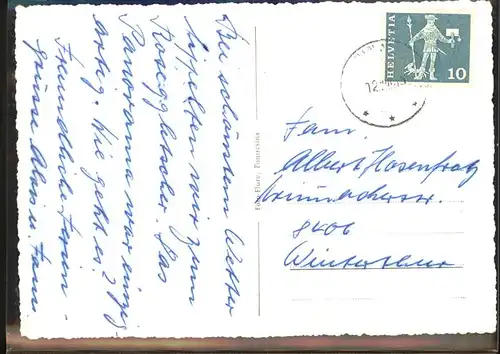 Bei schönstem Wetter
tippelten wir zum
Roseggletscher. Das
Panorama war einzig-
artig. Wie geht es?
Freundliche Ferien-
grüsse Alois u. Fam.
Foto Flury, Pontresina
HELVETIA
10
12
Fam.
Albert Hasenfratz
8406
Winterthur